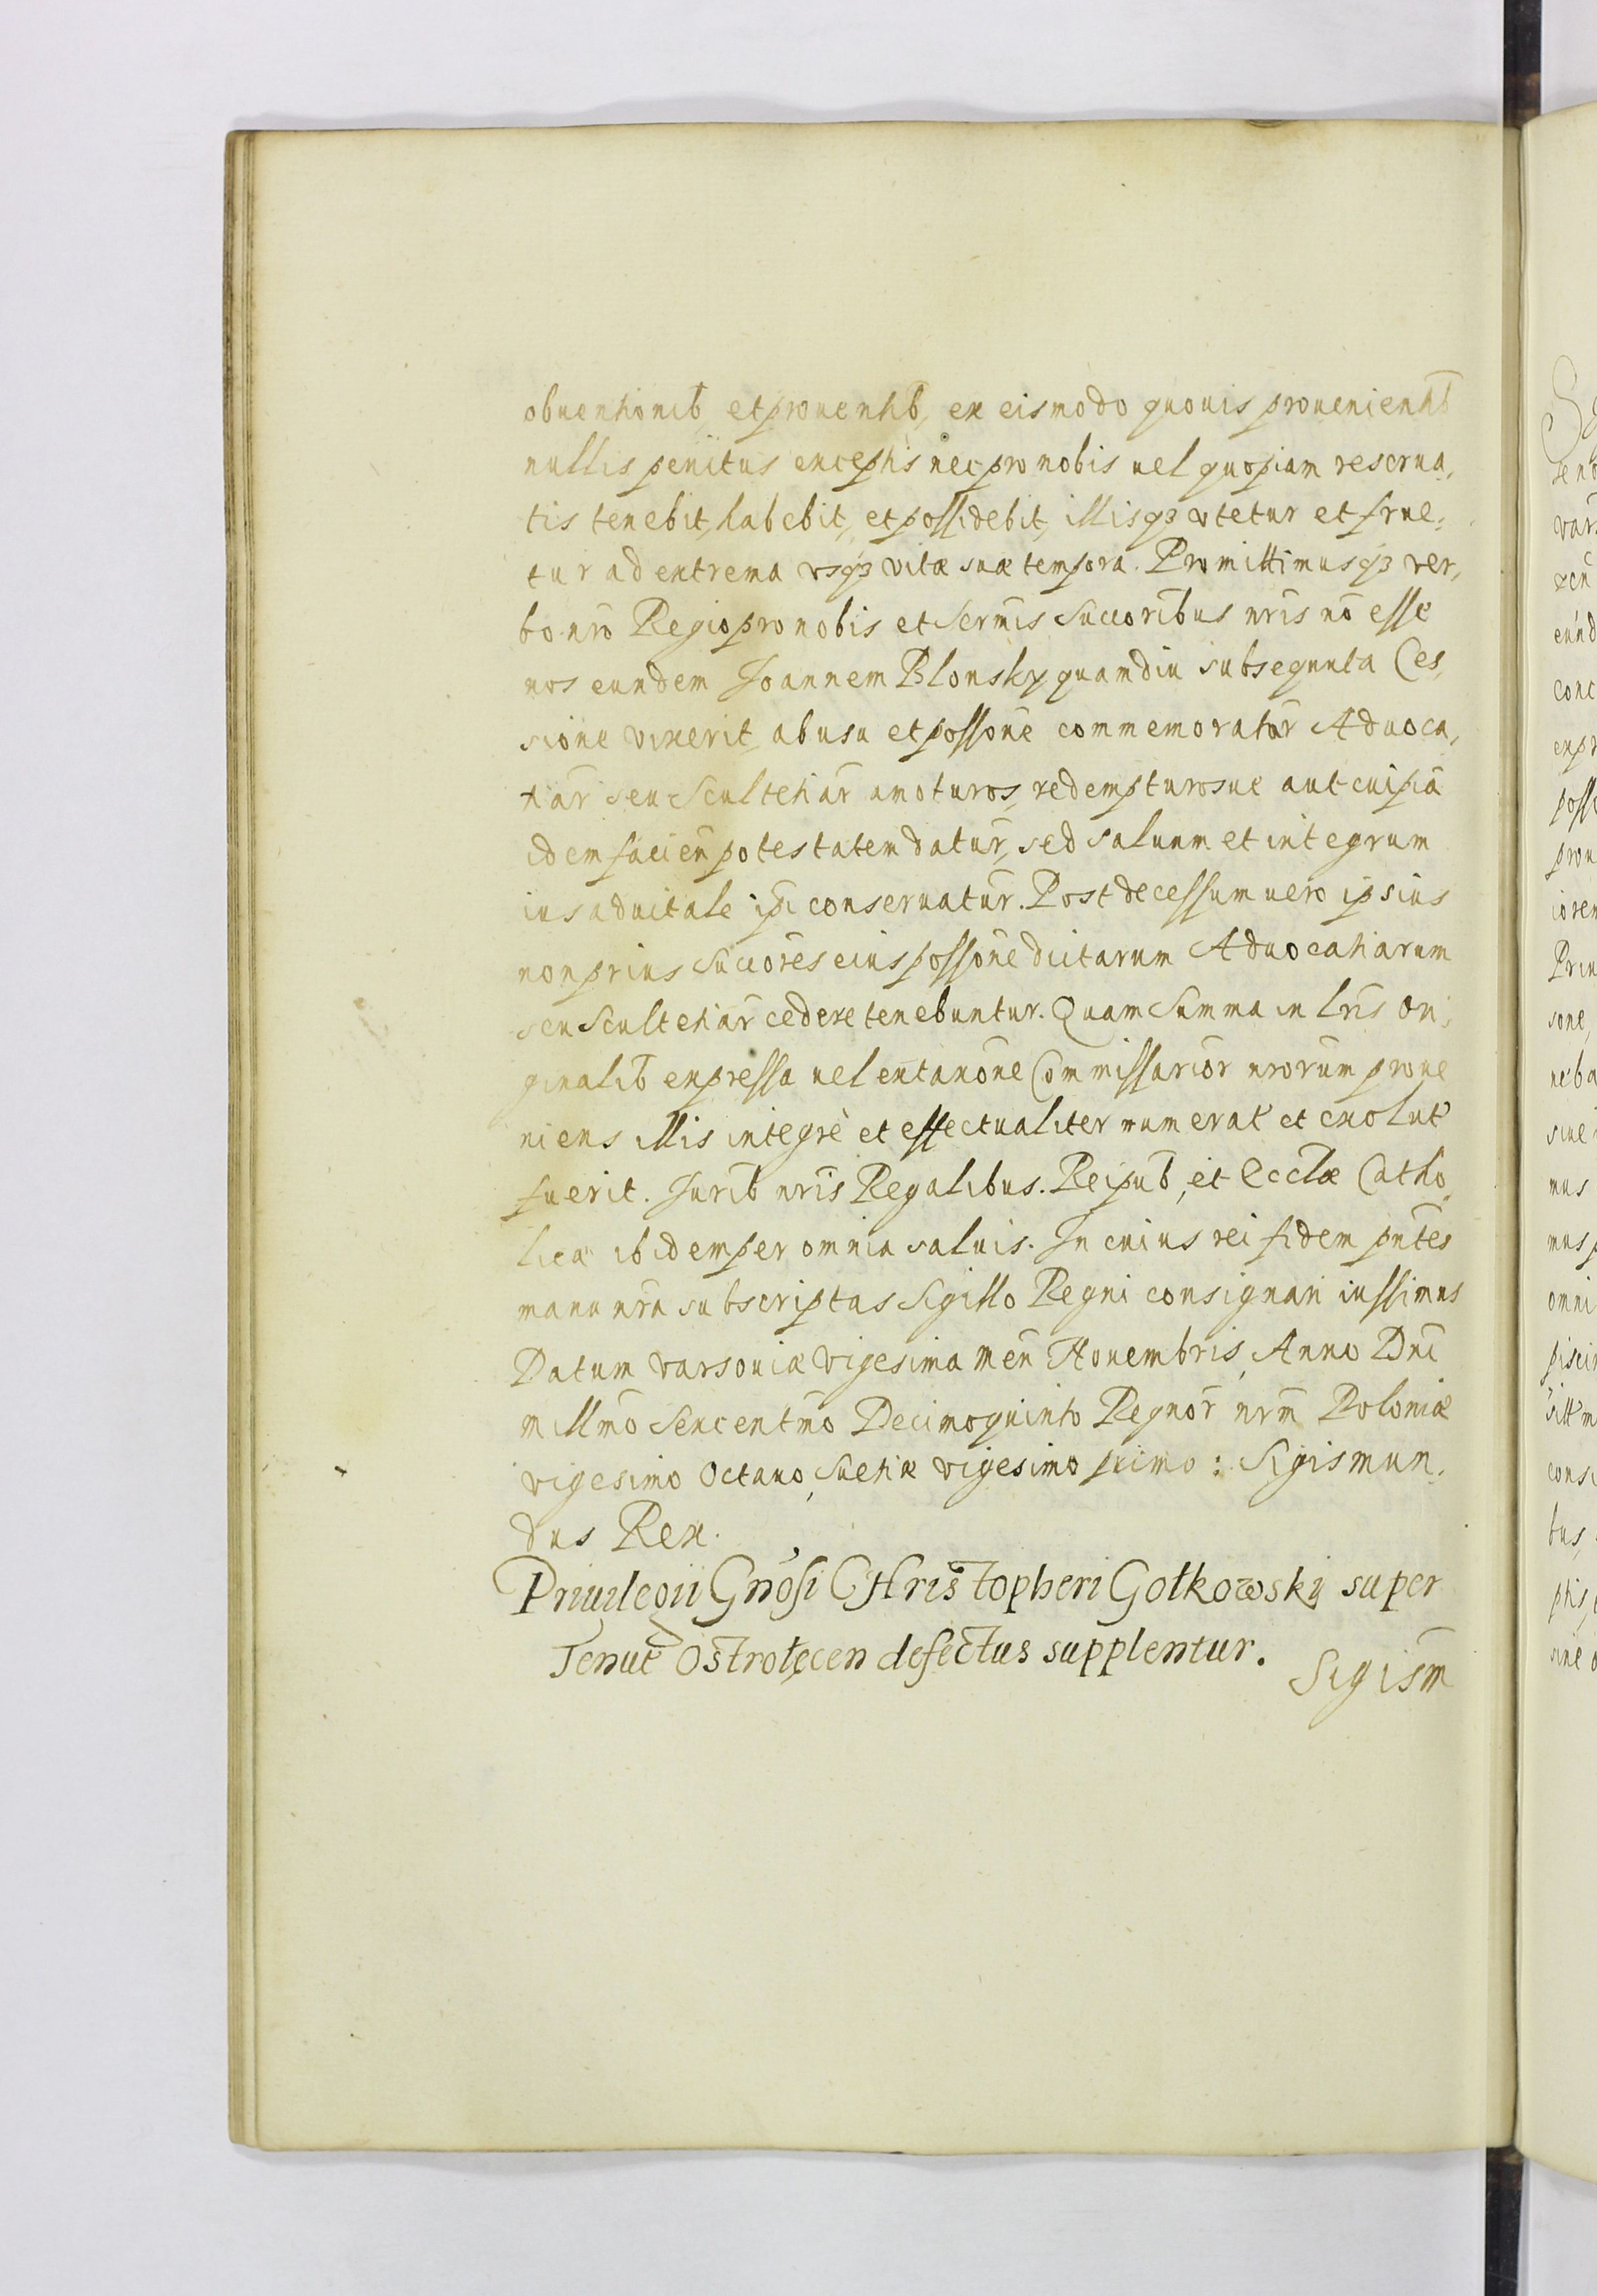 obuentionib, et prouentib, ex eismodo quouis prouenientib
nullis penitus exceptis nec pro nobis uel quopiam reserua,
tis tenebit, habebit, et possidebit, illisqȝ vtetur et frue,
tur ad extrema vsqȝ vitæ suæ tempora. Promittimusqȝ ver,
bo nr̃o Regio pro nobis et Serm̃is Succoribus nr̃is nõ esse
nos eundem Joannem Blonsky quamdiu subsequuta Ces,
sione vixerit, ab usu et possone commemoratar Aduoca,
tiar seu Scultetiar amoturos, redempturosue aut cuipiã
idem facieñ potestatem datur̃, sed saluum et integrum
ius aduitale ip̃i conseruatur̃. Post decessum uero ipsius
non prius Succores eius possone dictarum Aduocatiarum
seu Scultetiar cedere tenebuntur. Quam Summa in Lr̃is Ori,
ginalib expressa uel extaxone Commissarior nrorum proue
niens illis integrè et effectualiter numerat et euolut
fuerit. Jurib nr̃is Regalibus. Reipub, et Ecclæ Catho,
licæ ibidem per omnia saluis. In cuius rei fidem pñtes
manu nr̃a subscriptas Sigillo Regni consignari iussimus
Datum Varsouiæ Vigesima meñ Nouembris, Anno Dñi
millm̃o Sexcentm̃o Decimoquinto Regnor̃ nrm̃ Poloniæ
vigesimo Octauo, Suetiæ vigesimo primo: Sigismun,
dus Rex.
Priuilegii Gñosi CHristopheri Gołkowskÿ super
Tenut̃ Ostrołęcen defectus supplentur.
Sigism̃